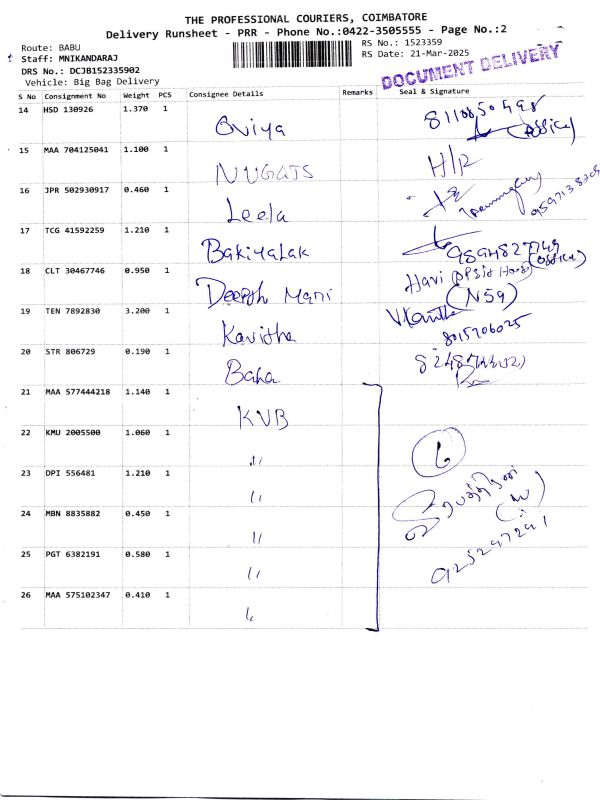 THE PROFESSIONAL COURIERS, COIMBATORE
Delivery Runsheet - PRR - Phone No.:0422-3505555 - Page No.:2
Route: BABU
RS No.: 1523359
Staff: MNIKANDARAJ
RS Date: 21-Mar-2025
DRS No.: DCJB152335902
DOCUMENT DELIVERY
Vehicle: Big Bag Delivery
S No Consignment No Weight PCS Consignee Details Remarks Seal & Signature
14 HSD 130926 1.370 1
Oviya
(Office)
15 MAA 704125041 1.100 1
NUGATS H/R
16 JPR 502930917 0.460 1
Leela
17 TCG 41592259 1.210 1
BakiyaLak 9894827749
(Office)
18 CLT 30467746 0.950 1
Hari
Deepsh Mani (N59)
19 TEN 7892830 3.200 1
Kavitha 8015706025
20 STR 806729 0.190 1
Baha
21 MAA 577444218 1.140 1
KVB
22 KMU 2005500 1.060 1
〃
6
23 DPI 556481 1.210 1
〃
24 MBN 8835882 0.450 1
〃
25 PGT 6382191 0.580 1
〃
925297291
26 MAA 575102347 0.410 1
〃